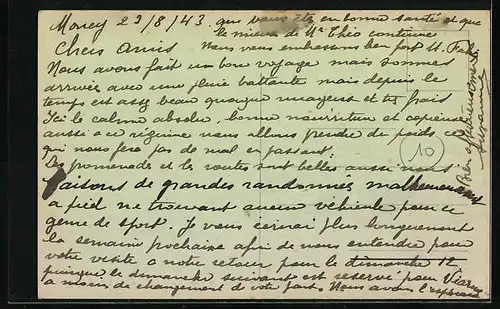 Moncy 23/8/43. que vous êtes en bonne santé et que
le mieux de Mr Théo continue
Chers Amis Nous vous embrassons bien fort
Nous avons fait un bon voyage mais sommes
arrivés avec une pluie battante mais depuis le
temps est assez beau quoique nuageux et très frais
Ici le calme absolu, bonne nourriture et copieuse
aussi à ce régime nous allons prendre du poids ce
qui nous fera pas de mal en passant.
Les promenades et les routes sont belles aussi nous
faisons de grandes randonnées malheureusement
à pied ne trouvant aucun véhicule pour ce
genre de sport. Je vous écrirai plus longuement
la semaine prochaine afin de nous entendre pour
votre visite à notre retour pour le dimanche 12
puisque le dimanche suivant est réservé pour
à moins de changement de votre part. Nous avons l'espérance
10
Bien affectueusement
Suzanne